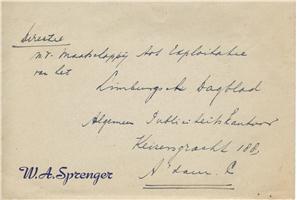 Directie
N.V. Maatschappij tot Exploitatie
van het
Limburgsch Dagblad
Algemeen Publiciteitskantoor
Keizersgracht 188,
A'dam. C
W.A. Sprenger